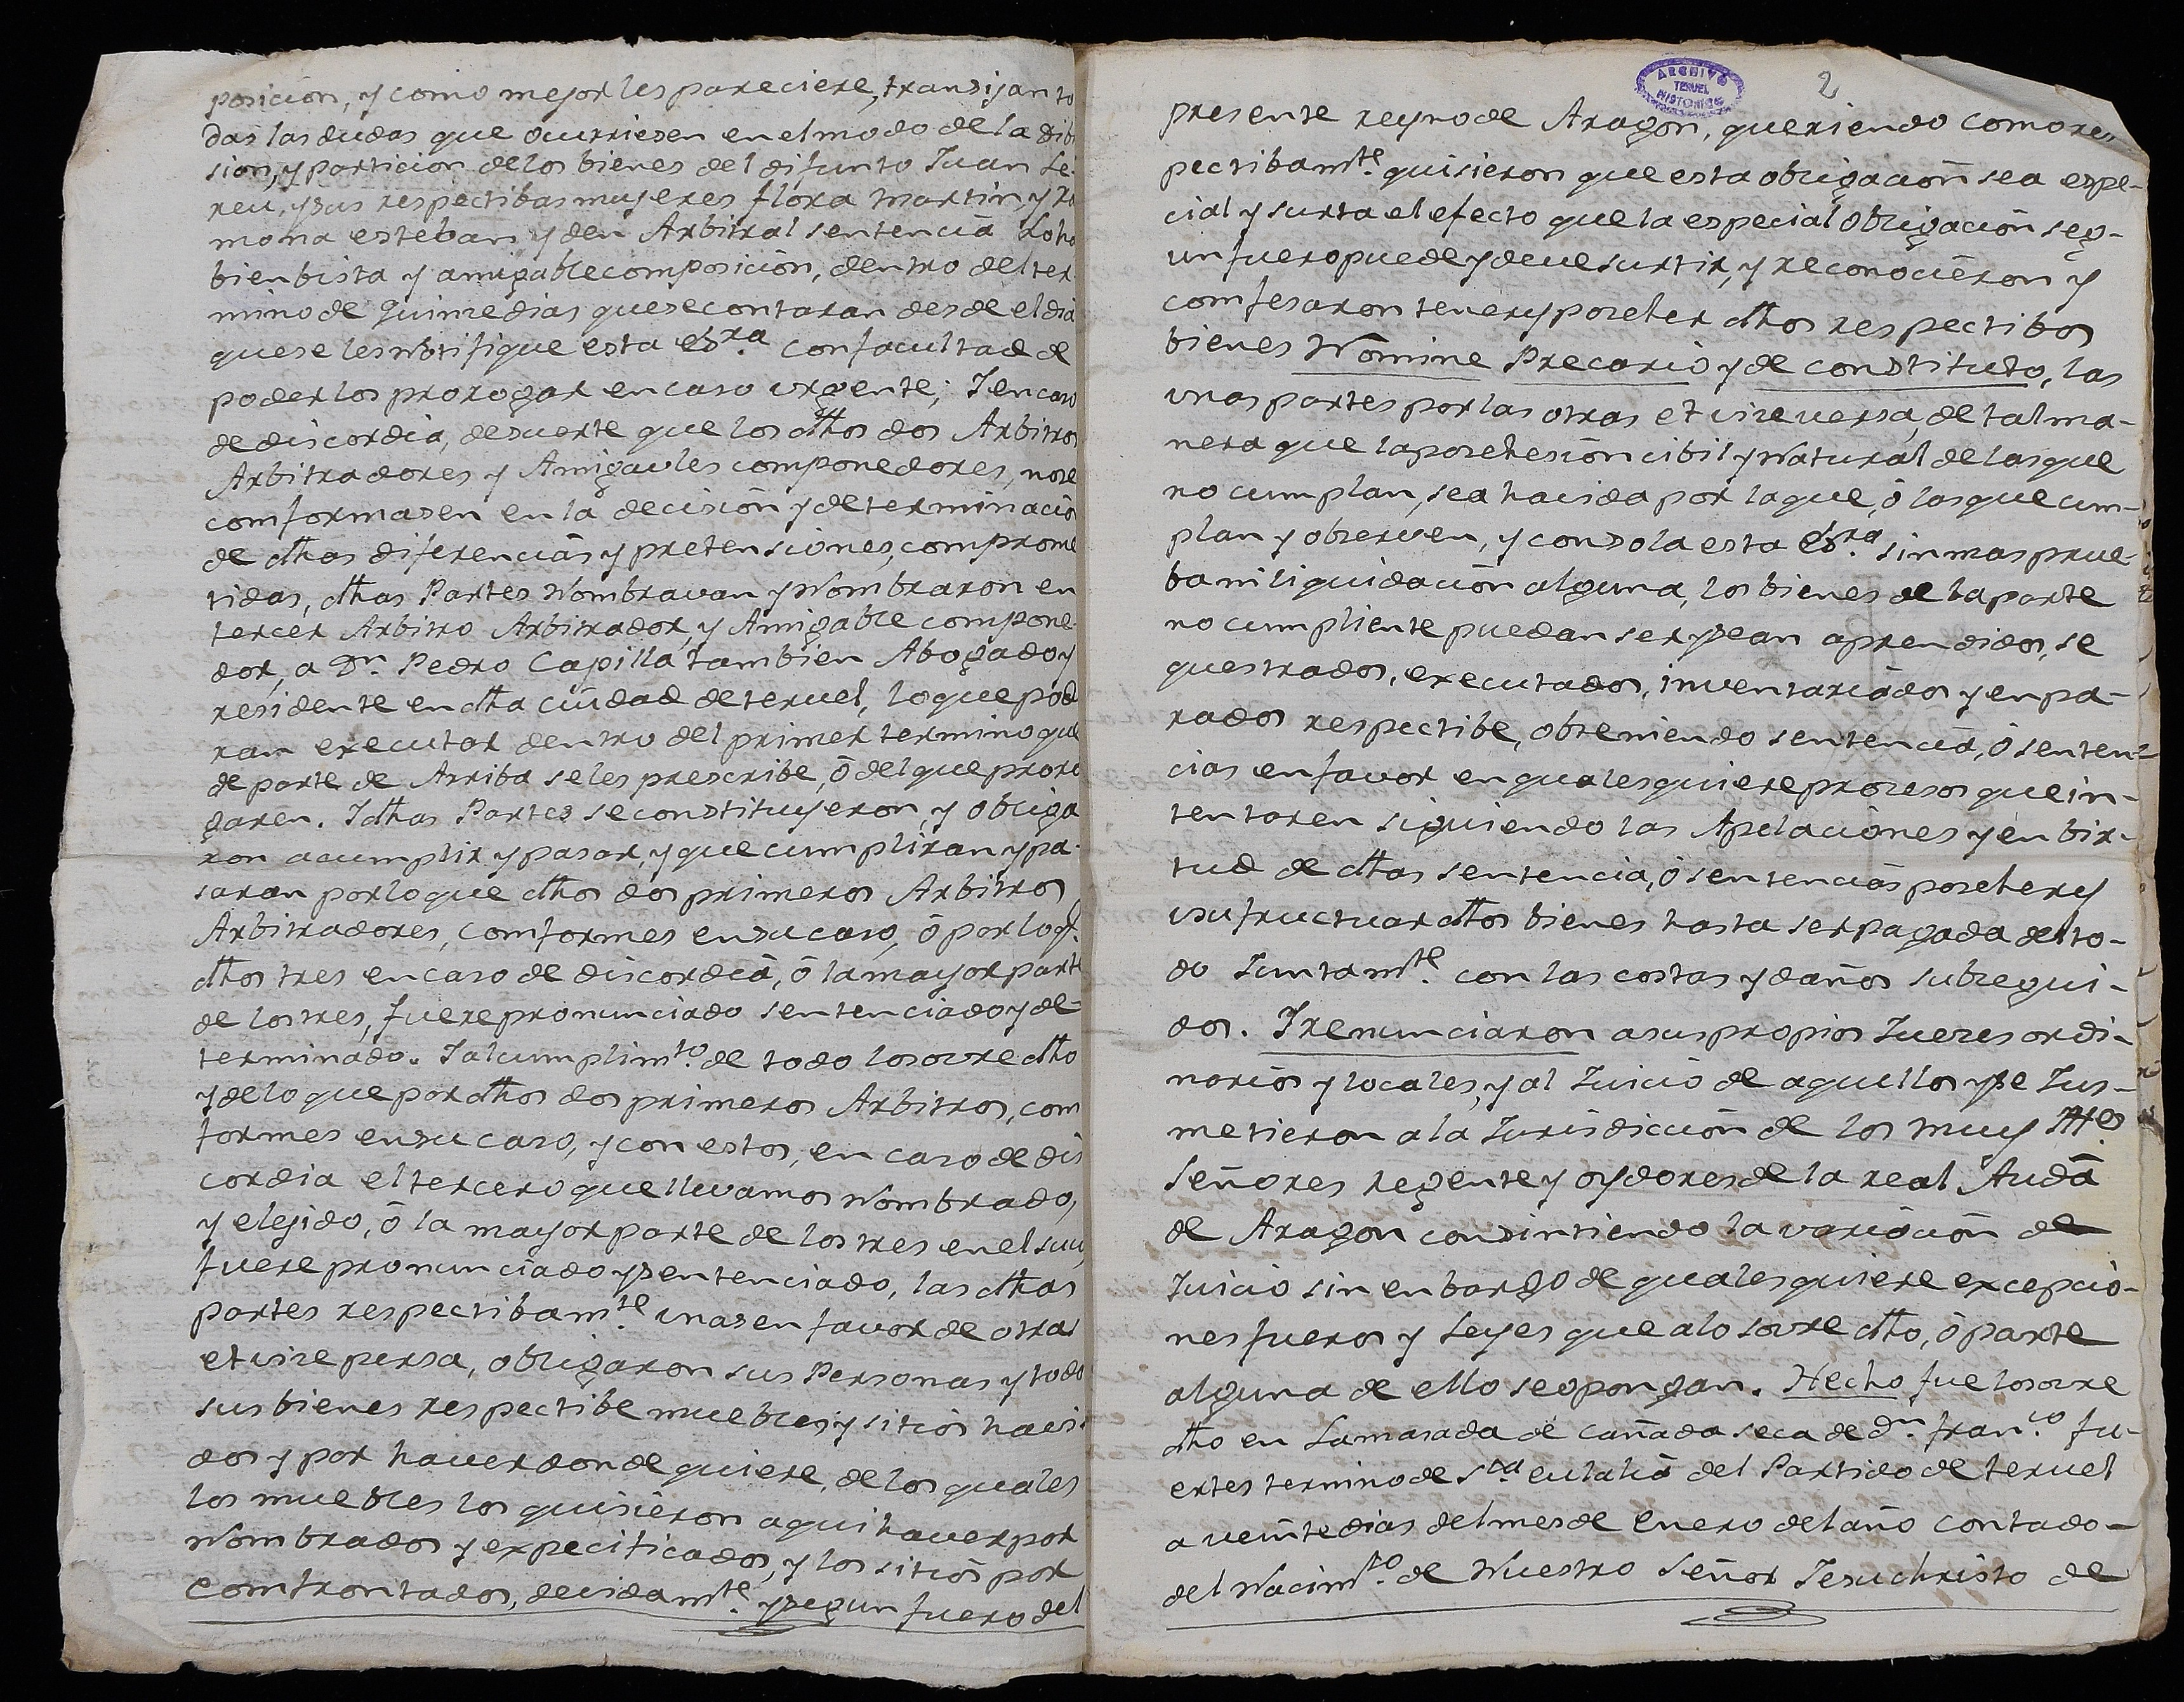 posicion, y como mejor les pareciere, transijan to
das las dudas que ocurriesen en el modo de la dibi
sion, y particion de los bienes del difunto Juan Le-
reu, y sus respectibas mujeres flora martin, y Ra
mona esteban y den Arbitral sentencia Loha
bien bista y amigable composicion, dentro del ter
mino de quince dias que se contaran desde el dia
que se les Notifique esta esra. con facultad de
poderlos prorogar en caso urgente; I en caso
de discordia, de suerte que los dhos dos Arbitros
Arbitradores y Amigavles componedores, no se
comformasen en la decision y determinacio
de dhas diferencias y pretensiones, comprome
tidas, dhas Partes Nombravan y Nombraron en
tercer Arbitro Arbitrador, y Amigable compone-
dor, a Dn. Pedro Capilla tambien Abogado y
residente en dha ciudad de teruel, lo que pod
ran executar dentro del primer termino que
de parte de Arriba se les prescribe, ó del que proro
garen. I dhas Partes se constituyeron y obliga
ron a cumplir y pasar, y que cumpliran y pa-
saran por lo que dhos dos primeros Arbitros
Arbitradores, comformes en su caso, ó por lo q.
dhos tres en caso de discordia, ó la mayor parte
de los tres, fuere pronunciado sentenciado y de-
terminado. I al cumplimto. de todo lo sovre dho
y de lo que por dhos dos primeros Arbitros, com
formes en su caso, y con estos, en caso de dis
cordia el tercero que llevamos Nombrado,
y elejido, ó la mayor parte de los tres en el suyo
fuere pronunciado y sentenciado, las dhas
partes respectibamte. unas en favor de otras
et vice persa, obligaron sus Personas y todo
sus bienes respectibe muebles y sitios havi-
dos y por haver donde quiere, de los quales
los muebles los quisieron aqui haver por
Nombrados y expecificados, y los sitios por
comfrontados, devidamte. y segun fuero del
ARCHIVO
TERUEL
HISTORICO
2
presente reyno de Aragon, queriendo como res
pectibamte. quisieron que esta obligacion sea espe-
cial y surta el efecto que la especial obligacion seg-
un fuero puede y deve surtir, y reconocieron y
comfesaron tener y poseher dhos respectibos
bienes Nomine Precario y de constituto, las
unas partes por las otras et vice versa, de tal ma-
nera que la posehesion cibil y Natural de las que
no cumplan, sea havida por la que, ó las que cum-
plan y observen, y con sola esta esra. sin mas prue-
ba ni liquidacion alguna, los bienes de la parte
no cumpliente puedan ser y sean aprendidos, se
questrados, executados, inventariados y enpa-
rados respectibe, obteniendo sentencia, ó senten-
cias en favor en qualesquiere procesos que in-
tentaren siguiendo las Apelaciones y en bir-
tud de dhas sentencia, ó sentencias poseher y
usufructuar dhos bienes hasta ser pagada del to-
do Juntamte. con las costas y daños subsegui-
dos. I renunciaron a sus propios Jueces ordi-
narios y locales, y al Juicio de aquellos y se Jus-
metieron a la Jurisdicion de los muy Illes
señores regente y oydores de la real Auda
de Aragon consintiendo la variacion de
Juicio sin enbargo de qualesquiere excepcio-
nes fueros y Leyes que a lo sovre dho, ó parte
alguna de ello se opongan. Hecho fue lo sovre
dho en La masada de cañada seca de dn. franco. fu-
ertes termino de Sta. eulalia del Partido de teruel
a veinte dias del mes de enero del año contado-
del Nacimto. de Nuestro Señor Jesuchristo de